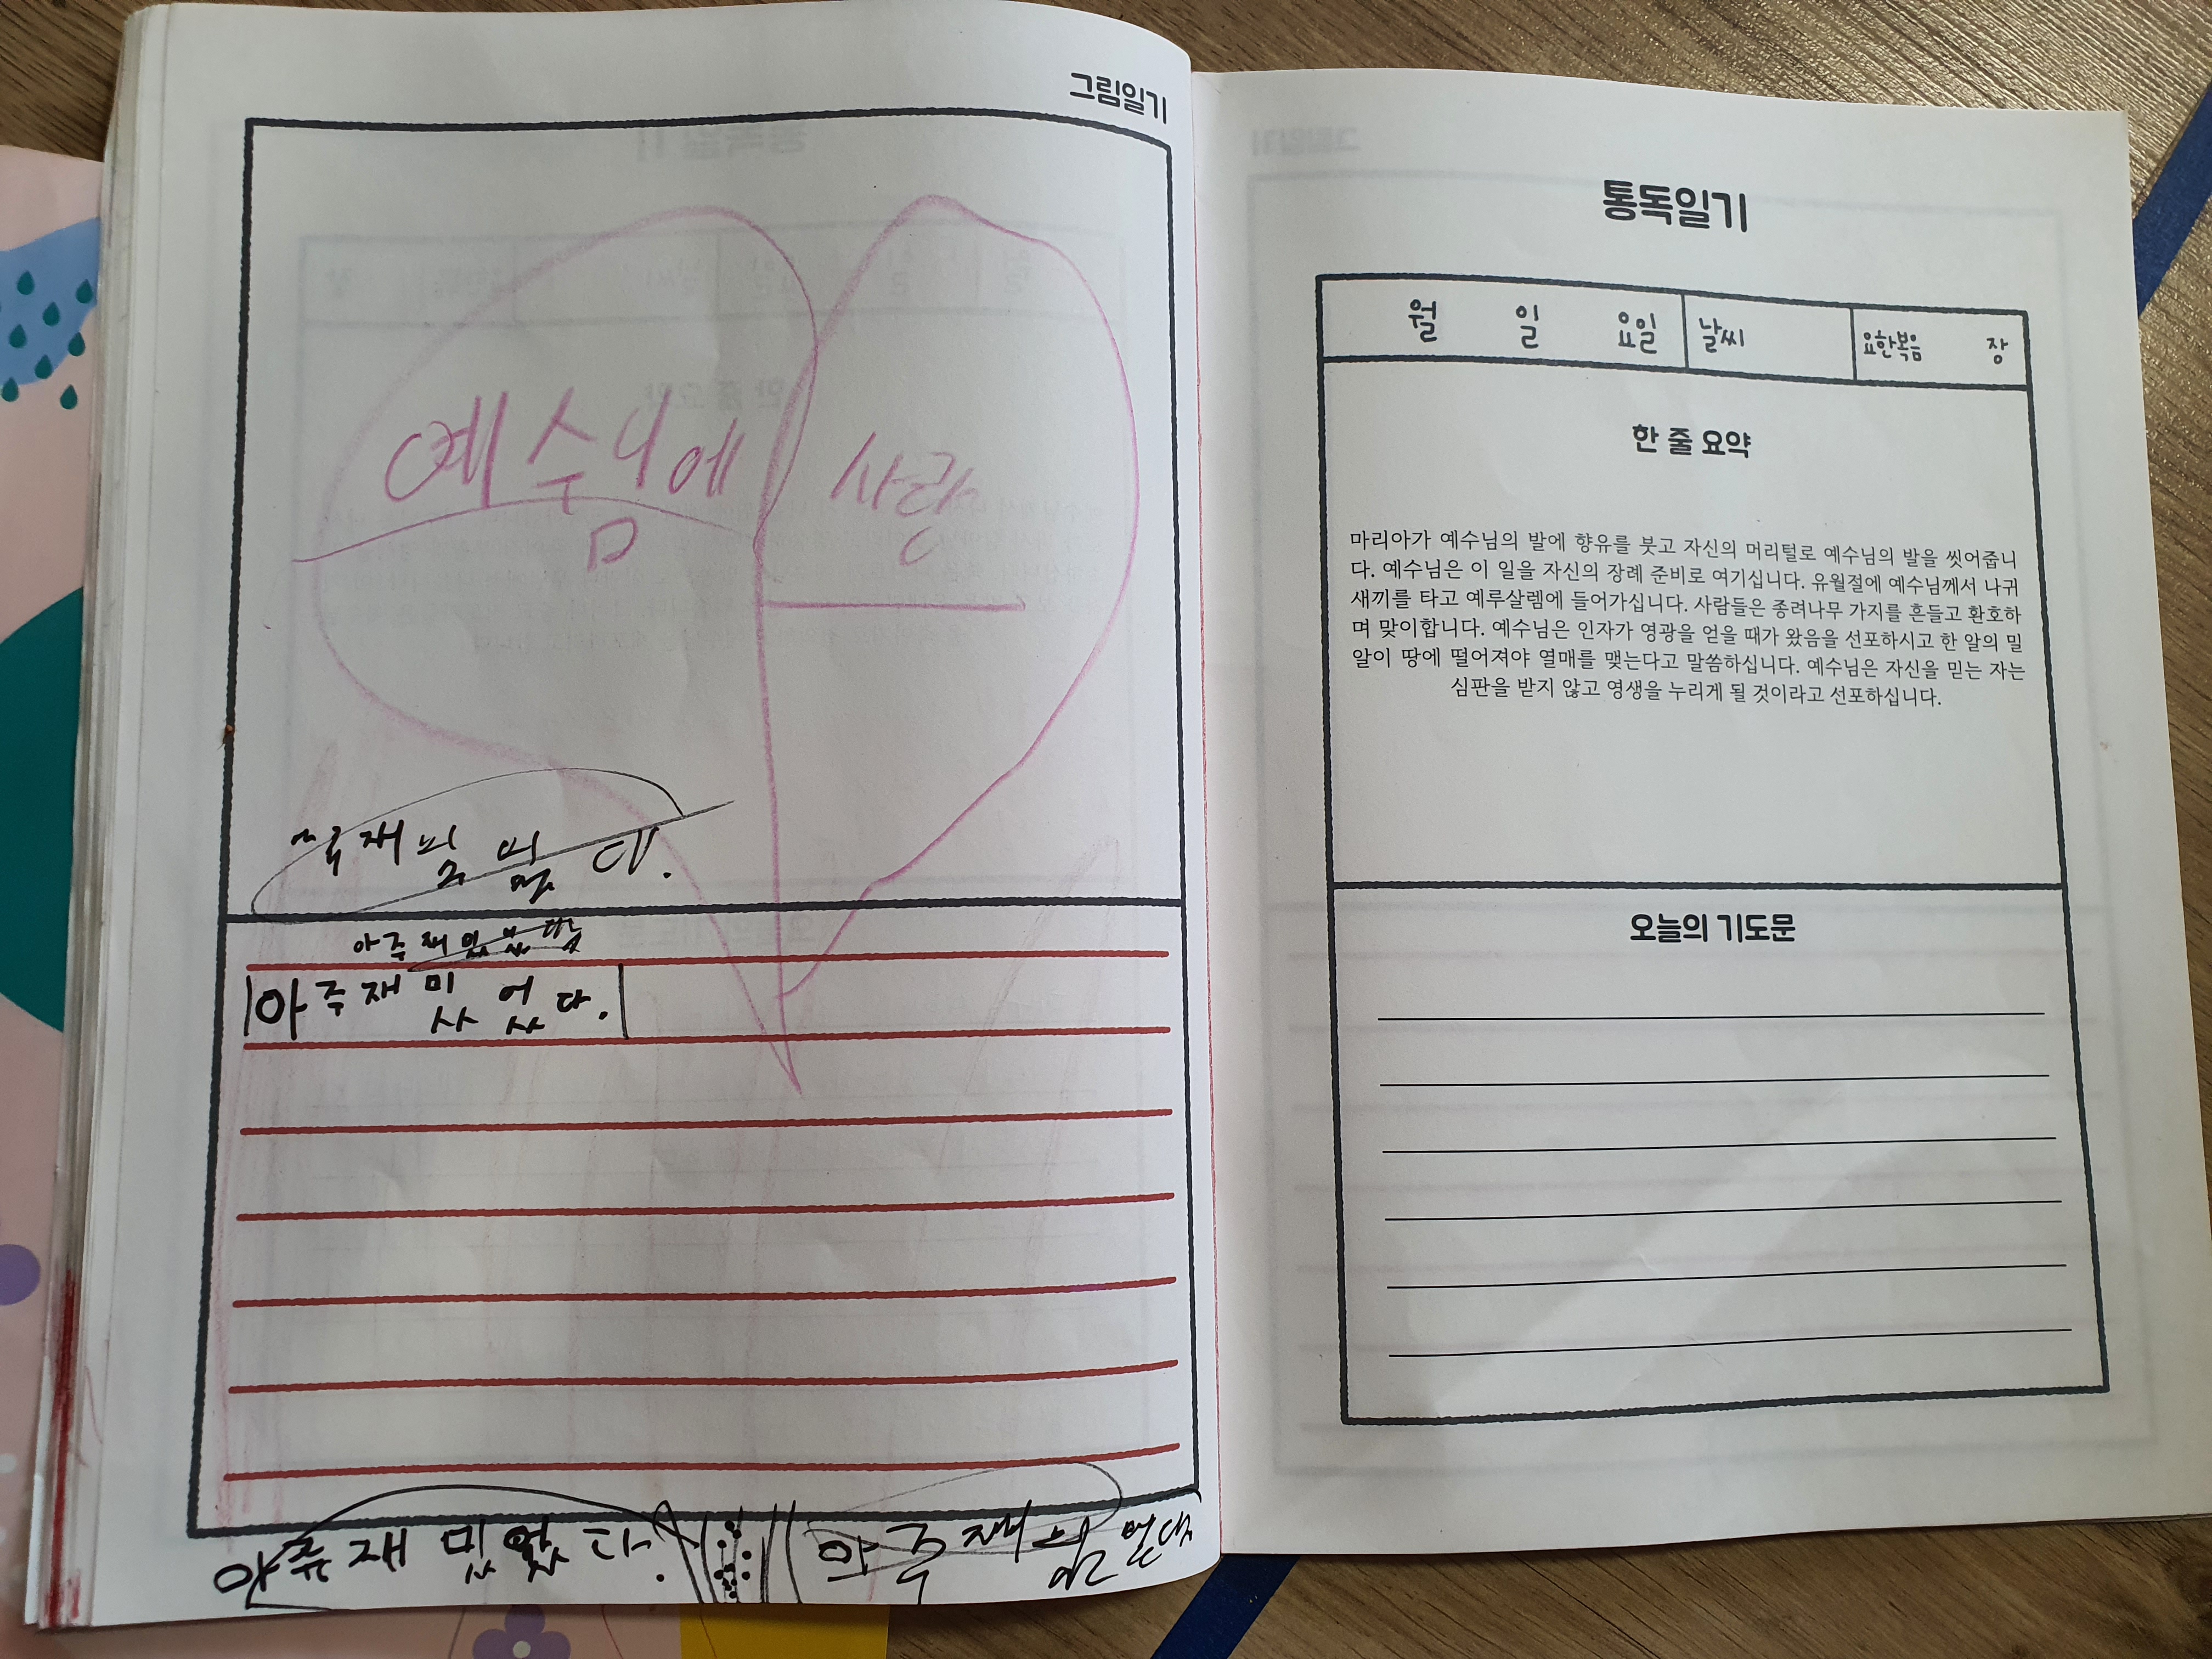 그림일기
예수님에 사랑
아주재
아주재밌었다.
아주재밌었다.
아주재
통독일기
월 일 요일 날씨 요한복음 장
한 줄 요약
마리아가 예수님의 발에 향유를 붓고 자신의 머리털로 예수님의 발을 씻어줍니
다. 예수님은 이 일을 자신의 장례 준비로 여기십니다. 유월절에 예수님께서 나귀
새끼를 타고 예루살렘에 들어가십니다. 사람들은 종려나무 가지를 흔들고 환호하
며 맞이합니다. 예수님은 인자가 영광을 얻을 때가 왔음을 선포하시고 한 알의 밀
알이 땅에 떨어져야 열매를 맺는다고 말씀하십니다. 예수님은 자신을 믿는 자는
심판을 받지 않고 영생을 누리게 될 것이라고 선포하십니다.
오늘의 기도문